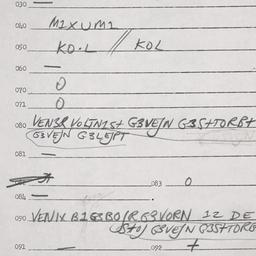 030
040 M1XUM1
050 KO.L // KOL
060 —
070 0
071 0
080 VEN3R VOLTN1S+ G3VEJN G3S++ORB+
G3VEJN G3LEJPT
081 —
083 0
084 —
090 VENIX B1G3BOJR G3VORN 12 DE
S+OJ G3VEJN G3S++ORG
091 —
092 +